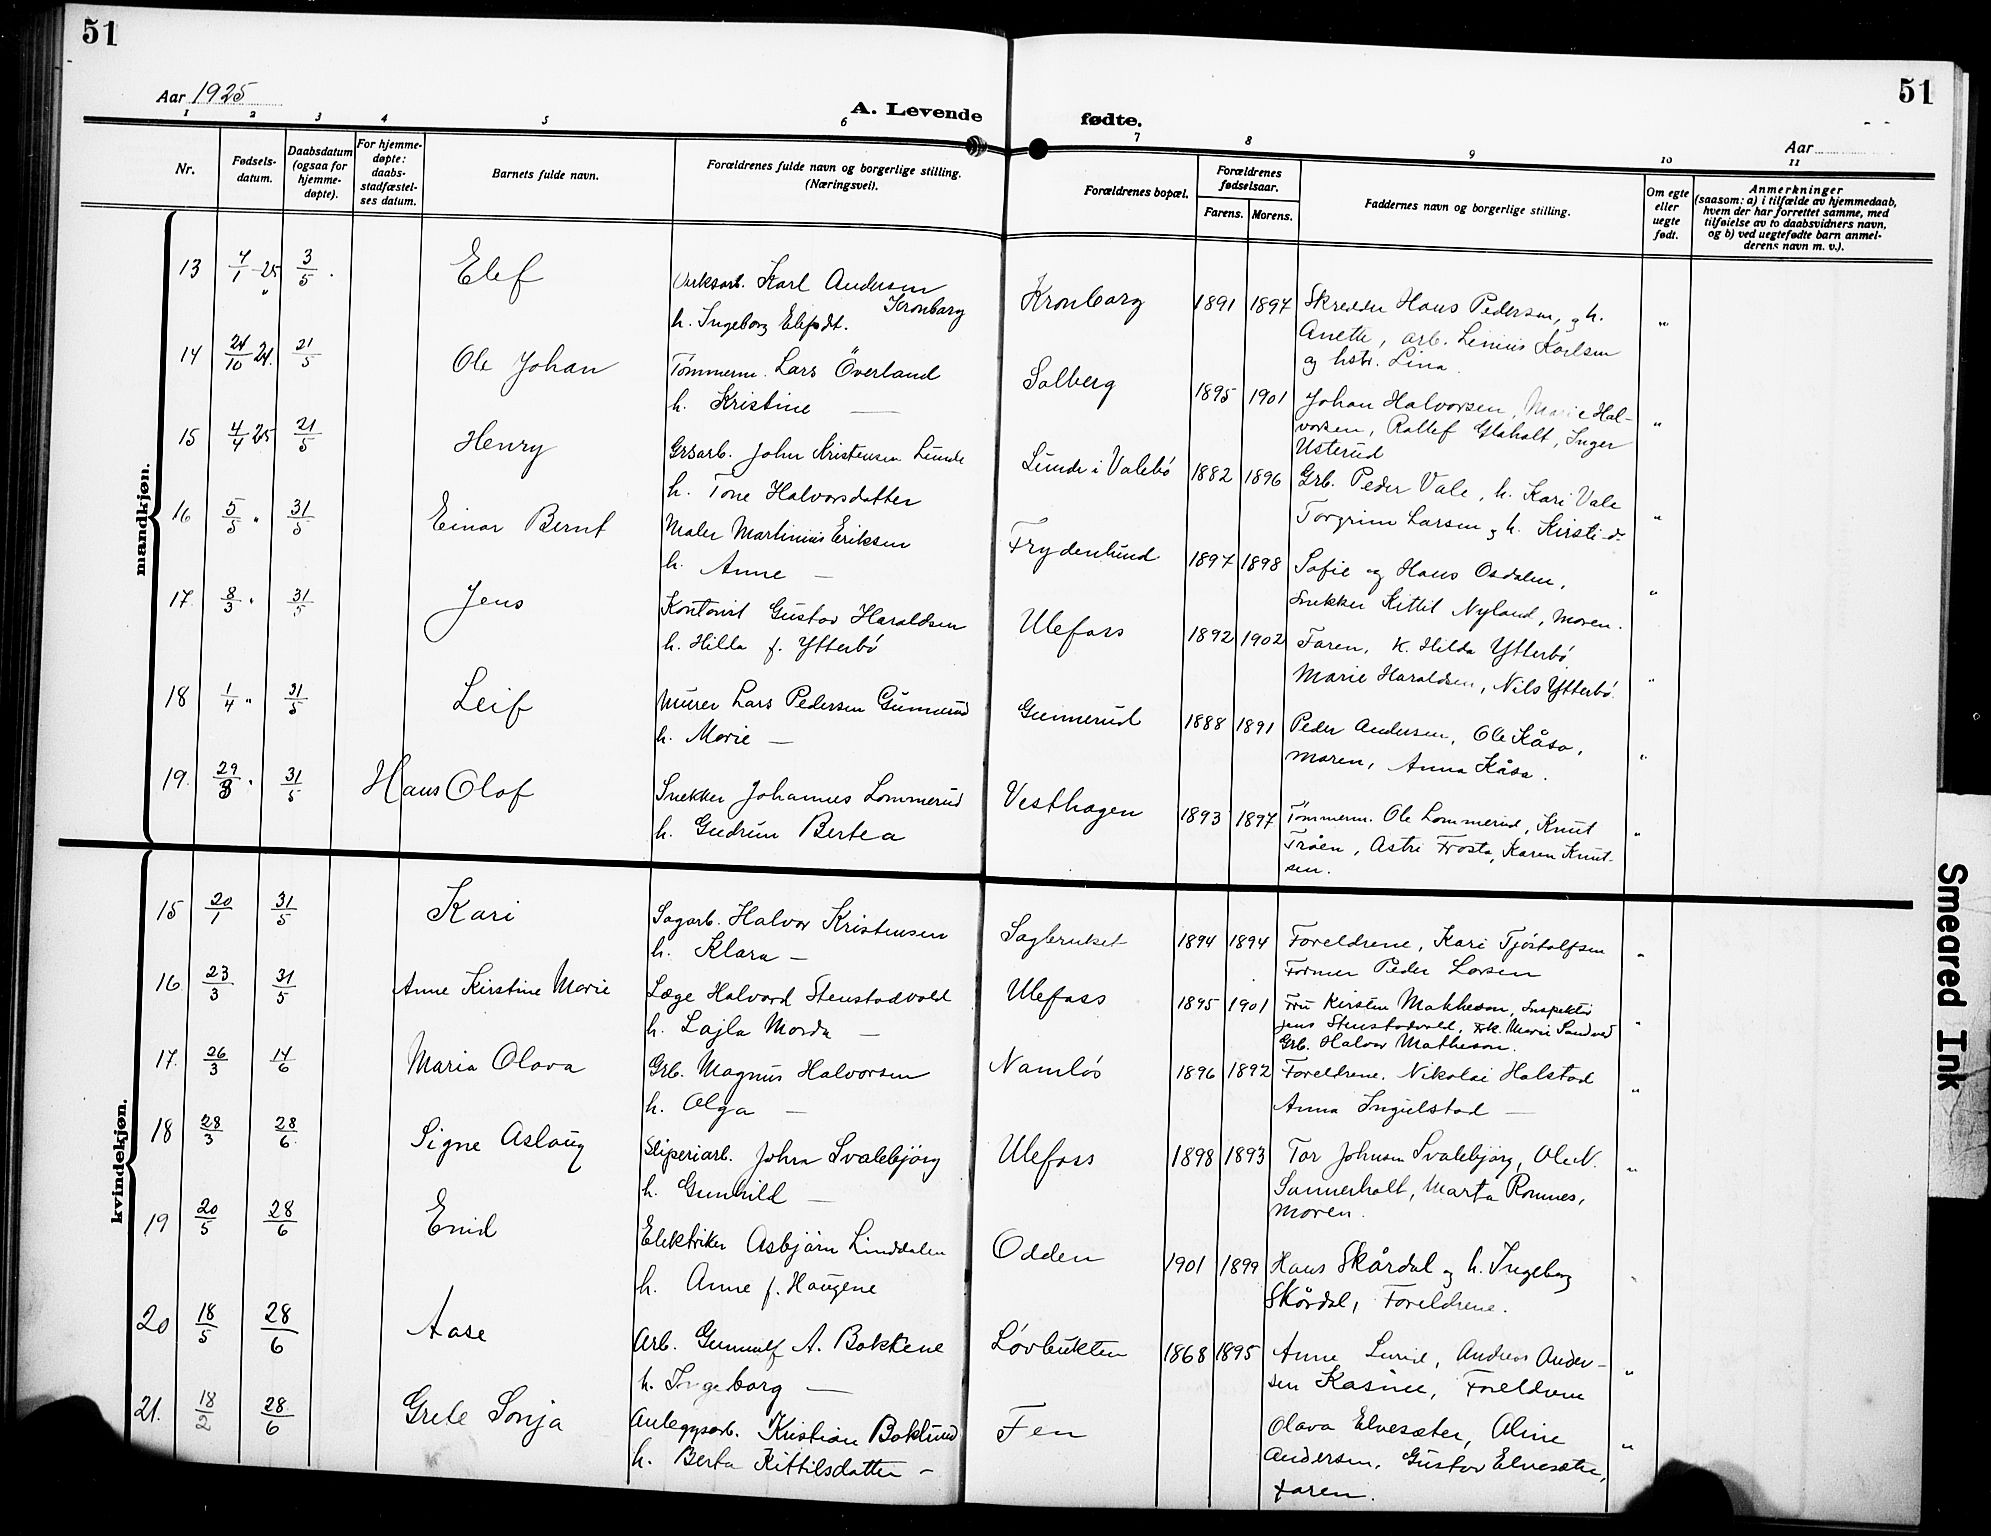 51
51
Aar 1925
A. Levende fødte.
Aar
1 2 3 4 5 6 7 8 9 10 11
Nr.
Fødsels-
datum.
Daabsdatum
(ogsaa for
hjemme-
døpte).
For hjemme-
døpte:
daabs-
stadfæstel-
ses datum.
Barnets fulde navn.
Forældrenes fulde navn og borgerlige stilling.
(Næringsvei).
Forældrenes bopæl.
Forældrenes
fødselsaar.
Farens. Morens.
Faddernes navn og borgerlige stilling.
Om egte
eller
uegte
født.
Anmerkninger
(saasom: a) i tilfælde av hjemmedaab,
hvem der har forrettet samme, med
tilføielse av to daabsvidners navn,
og b) ved uegtefødte barn anmel-
derens navn m. v.).
mandkjøn.
13 4/1 25 3/5 Elef Verksarb. Karl Andersen Kronborg 1891 1897 Skredder Hans Pedersen, og h.
Kronborg
h. Ingeborg Elefsdt. Anette, arb. Linius Karlsen
og hstr. Lina.
14 24/10 24. 21/5 Ole Johan Tømmerm. Lars Överland Solberg 1895 1901 Johan Halvorsen, Marie Hal-
h. Kristine — vorsen, Rollef Glaholt, Inger
Usterud
15 4/4 25 21/5 Henry Grsarb. John Kristensen Lunde Lunde i Valebø 1882 1896 Grb. Peder Vale, h. Kari Vale
h. Tone Halvorsdatter Torgrim Larsen og h. Kirsti do
16 5/5 " 31/5 Einar Bernt Maler Martinius Eriksen Frydenlund 1897 1898 Sofie og Hans Osdalen,
h. Anne — Snekker Kittil Nyland, Moren.
17. 8/3 " 31/5 Jens Kontorist Gustav Haraldsen Ulefoss 1892 1902 Faren, K. Hilda Ytterbø
h. Hilda f. Ytterbø Marie Haraldsen, Nils Ytterbø.
18 1/4 " 31/5 Leif Murer Lars Pedersen Gunnerud Gunnerud 1888 1891 Peder Andersen, Ole Kåsa,
h. Marie — Moren, Anna Kåsa.
19. 29/3 " 31/5 Hans Olaf Snekker Johannes Lommerud Vesthagen 1893 1897 Tømmerm. Ole Lommerud, Knut
h. Gudrun Bertea Tråen, Astri Frosta, Karen Knut-
sen.
kvindekjøn.
15 20/1 31/5 Kari Sagarb. Halvor Kristensen Sagbruket 1894 1894 Foreldrene, Kari Tjöstolfsen
h. Klara — Former Peder Larsen
16 23/3 31/5 Anne Kirstine Marie Læge Halvard Stenstadvold Ulefoss 1895 1901 Fru Kirsten Matheson, Inspektör
h. Lajla Mordu — Jens Stenstadvold, Frk. Marie Sandved
Grb. Halvor Matheson.
17. 26/3 14/6 Maria Olava Grb. Magnus Halvorsen Namløs 1896 1892 Foreldrene. Nikolai Halstad
h. Olga — Anna Ingulstad —
18 28/3 28/6 Signe Aslaug Sliperiarb. John Svalebjörg Ulefoss 1898 1893 Tor Johnsen Svalebjörg, Ole N.
h. Gunhild — Sannerholt, Marta Romnes,
Moren.
19 20/5 28/6 Enid Elektriker Asbjörn Linddalen Odden 1901 1899 Hans Skårdal og h. Ingeborg
h. Anne f. Haugene Skårdal, Foreldrene.
20 18/5 28/6 Aase Arb. Gunnulf A. Bakkene Løvbukten 1868 1895 Anne Lurid, Andreas Ander-
h. Ingeborg — sen Kasine, Foreldrene
21. 18/2 28/6 Grete Sonja Anleggsarb. Kristian Boklund Fen Olava Elvesæter, Aline
h. Berta Kittilsdatter — Andersen, Gustav Elvesæter,
Faren.
Smeared Ink